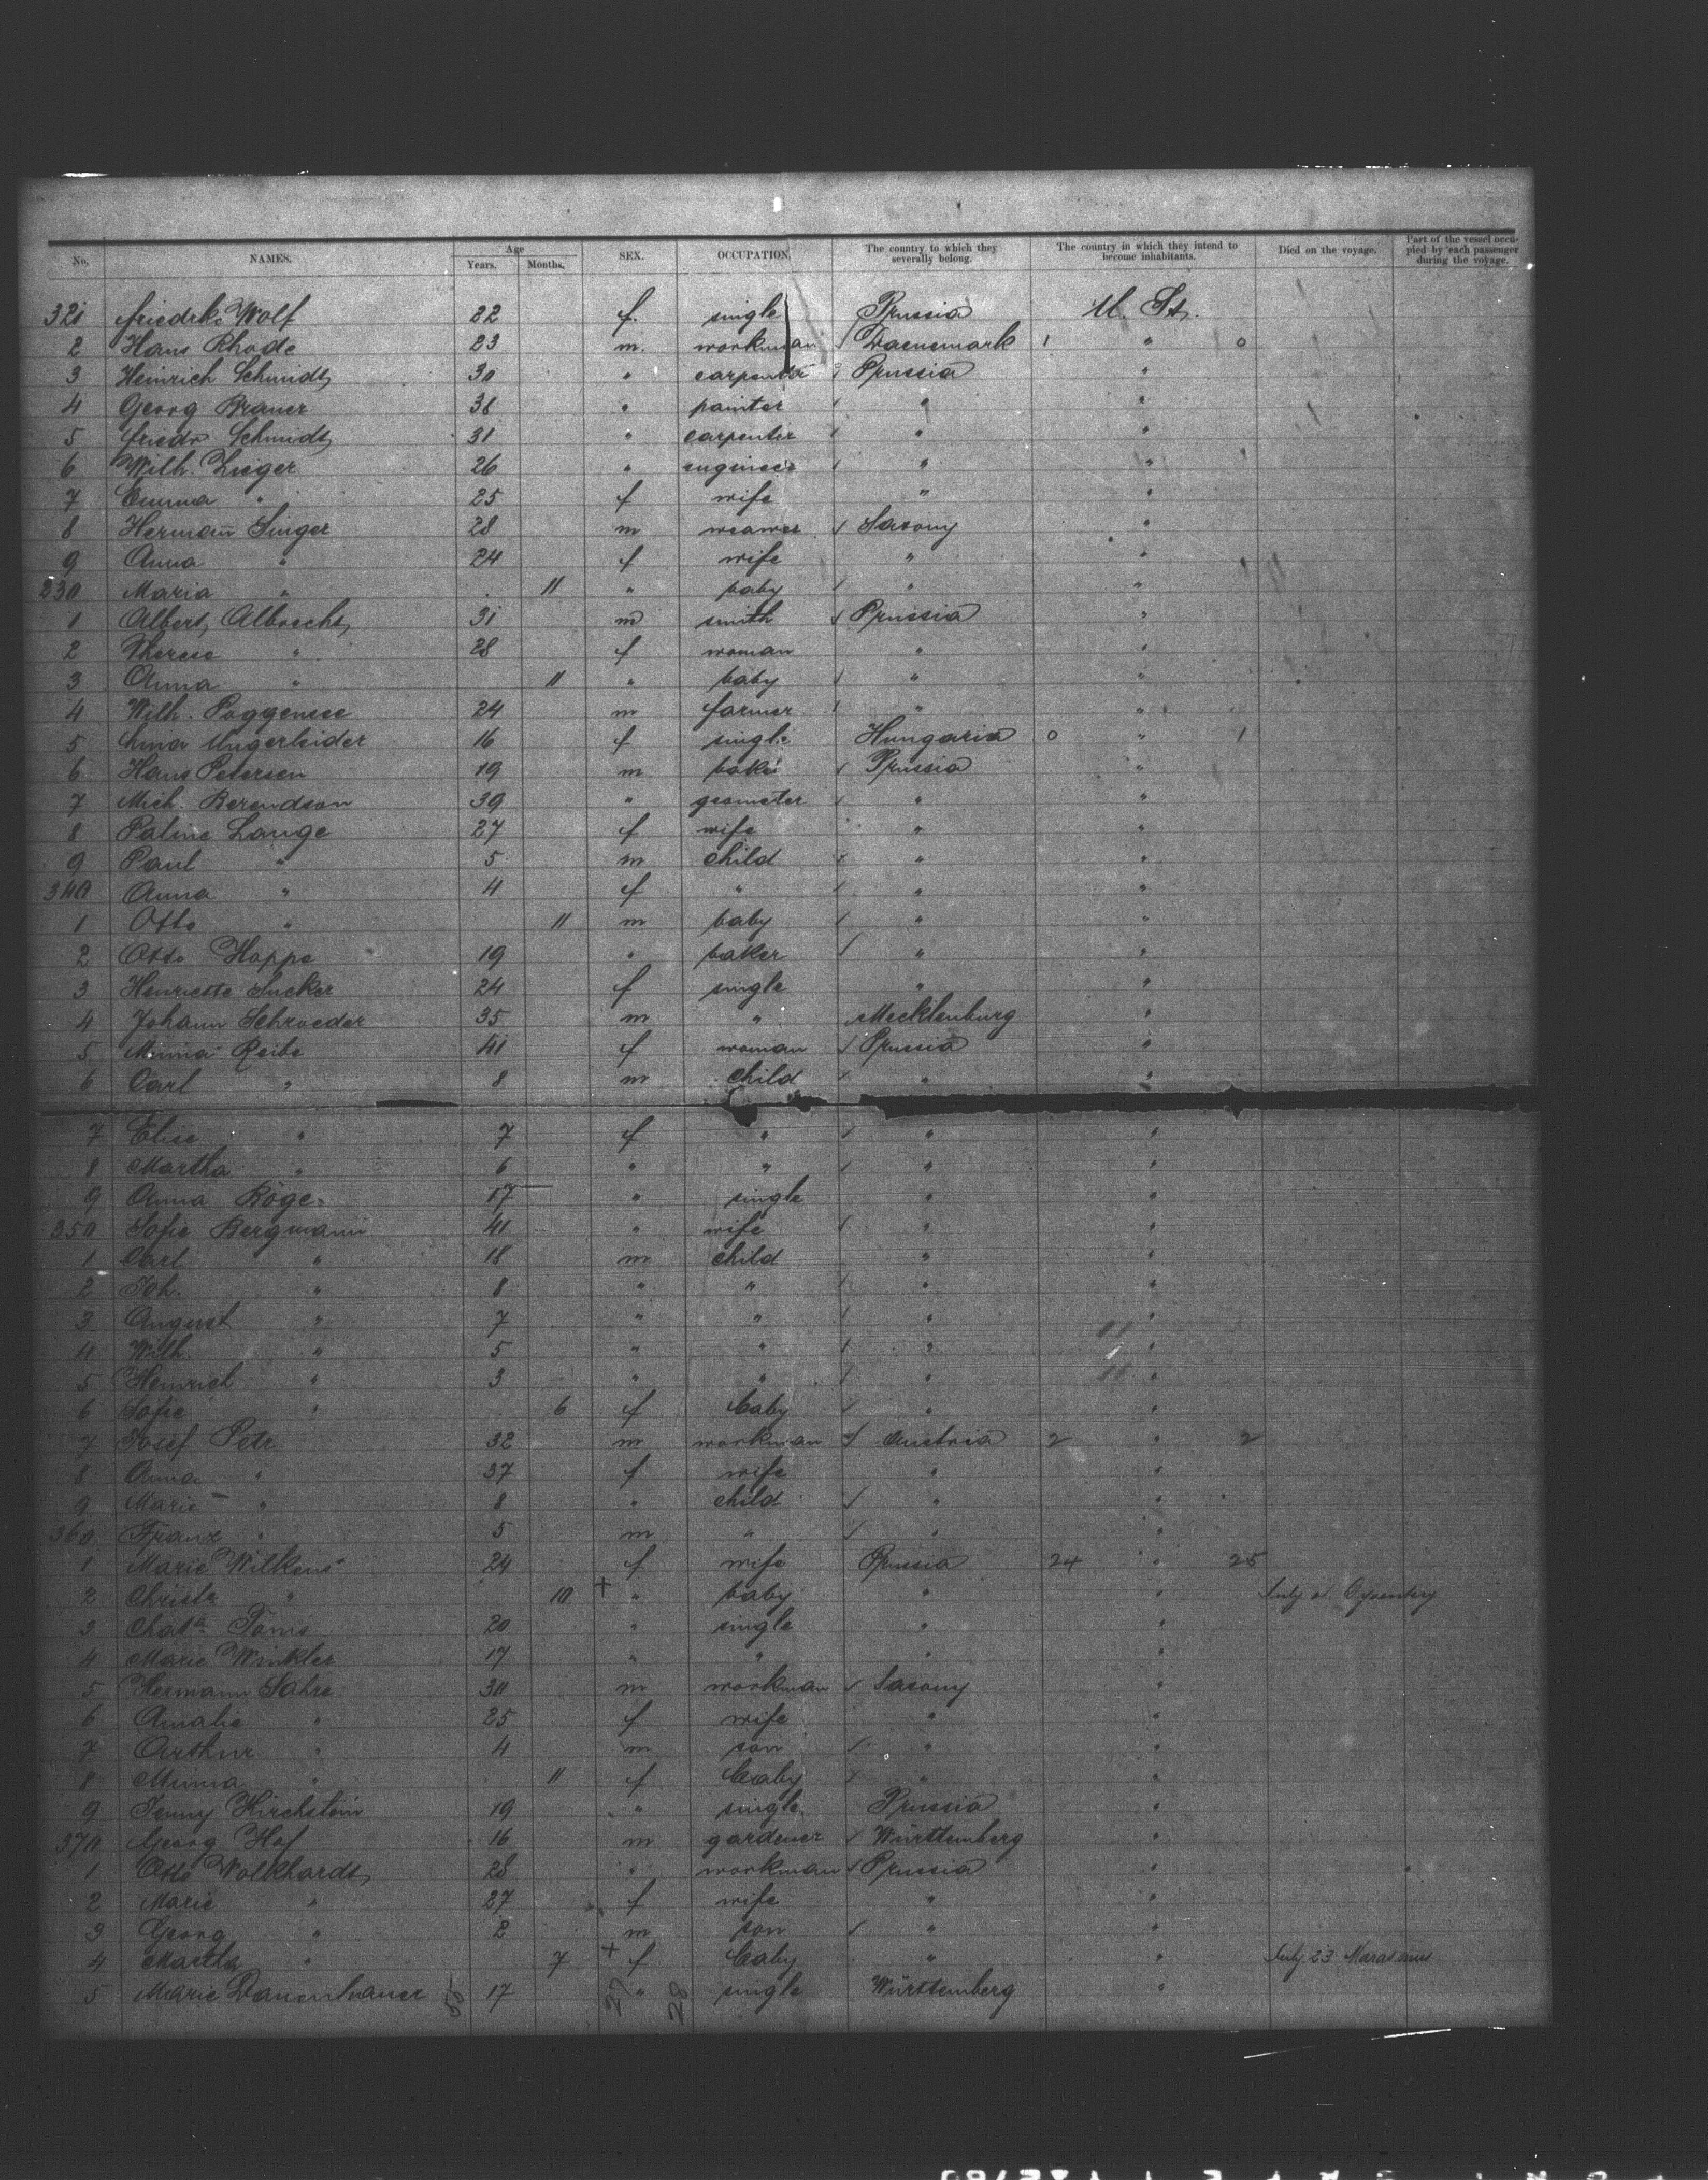 No. NAMES. Age Years. Months. SEX. OCCUPATION The country to which they severally belong. The country in which they intend to become inhabitants. Died on the voyage. Part of the vessel occupied by each passenger during the voyage.
321 Friedrke Wolf 22 f. single Prussia U. St.
2 Hans Rhode 23 m. workman Daenemark 1 " 0
3 Heinrich Schmidt 30 " carpenter Prussia "
4 Georg Brauer 38 " painter " "
5 Friedr Schmidt 31 " carpenter " "
6 Wilh. Zieger 26 " engineer " "
7 Emma " 25 f wife " "
8 Hermann Singer 28 m weawer Saxony "
9 Anna " 24 f wife " "
230 Maria " 11 " baby " "
1 Albert Albrecht 31 m smith Prussia "
2 Therese " 28 f woman " "
3 Anna " 11 " baby " "
4 Wilh. Poggensee 24 m farmer " "
5 Ungerleider 16 f single Hungaria 0 " 1
6 Hans Petersen 19 m baker Prussia "
7 Mich. Berendson 39 " geometer " "
8 Paline Lange 27 f wife " "
9 Paul " 5 m child " "
340 Anna " 4 f " " "
1 Otto " 11 m baby " "
2 Otto Hoppe 19 " baker " "
3 Henriette Sucker 24 f single " "
4 Johann Schroeder 35 m " Mecklenburg "
5 Minna Reibe 41 f woman Prussia "
6 Carl " 8 m child " "
7 Elise " 7 f " " "
8 Martha " 6 " " " "
9 Anna Böge 17 " single " "
350 Sofie Bergmann 41 " wife " "
1 Carl " 18 m child " "
2 Joh. " 8 " " " "
3 August " 7 " " " "
4 Wilh. " 5 " " " "
5 Heinrich " 3 " " " "
6 Sofie " 6 f baby " "
7 Josef Petr 32 m workman Austria 2 " 2
8 Anna " 37 f wife " "
9 Marie " 8 " child " "
360 Franz " 5 m " " "
1 Marie Wilkens 24 f wife Prussia 24 " 25
2 Christe " 10 + " baby " " July
3 Chate 20 " single " "
4 Marie Winkler 17 " " " "
5 Hermann Sahre 30 m workman Saxony "
6 Amalie " 25 f wife " "
7 Arthur " 4 m son " "
8 Minna " 11 f baby " "
9 Jenny Hirchstein 19 " single Prussia "
370 Georg Hof 16 m gardener Württemberg "
1 Otto Volkhardt 28 " workman Prussia "
2 Marie " 27 f wife " "
3 Georg " 2 m son " "
4 Martha " 7 + f baby " " July 23 Marasmus
5 Marie Danenhauer 17 " single Württemberg "
55 27 28